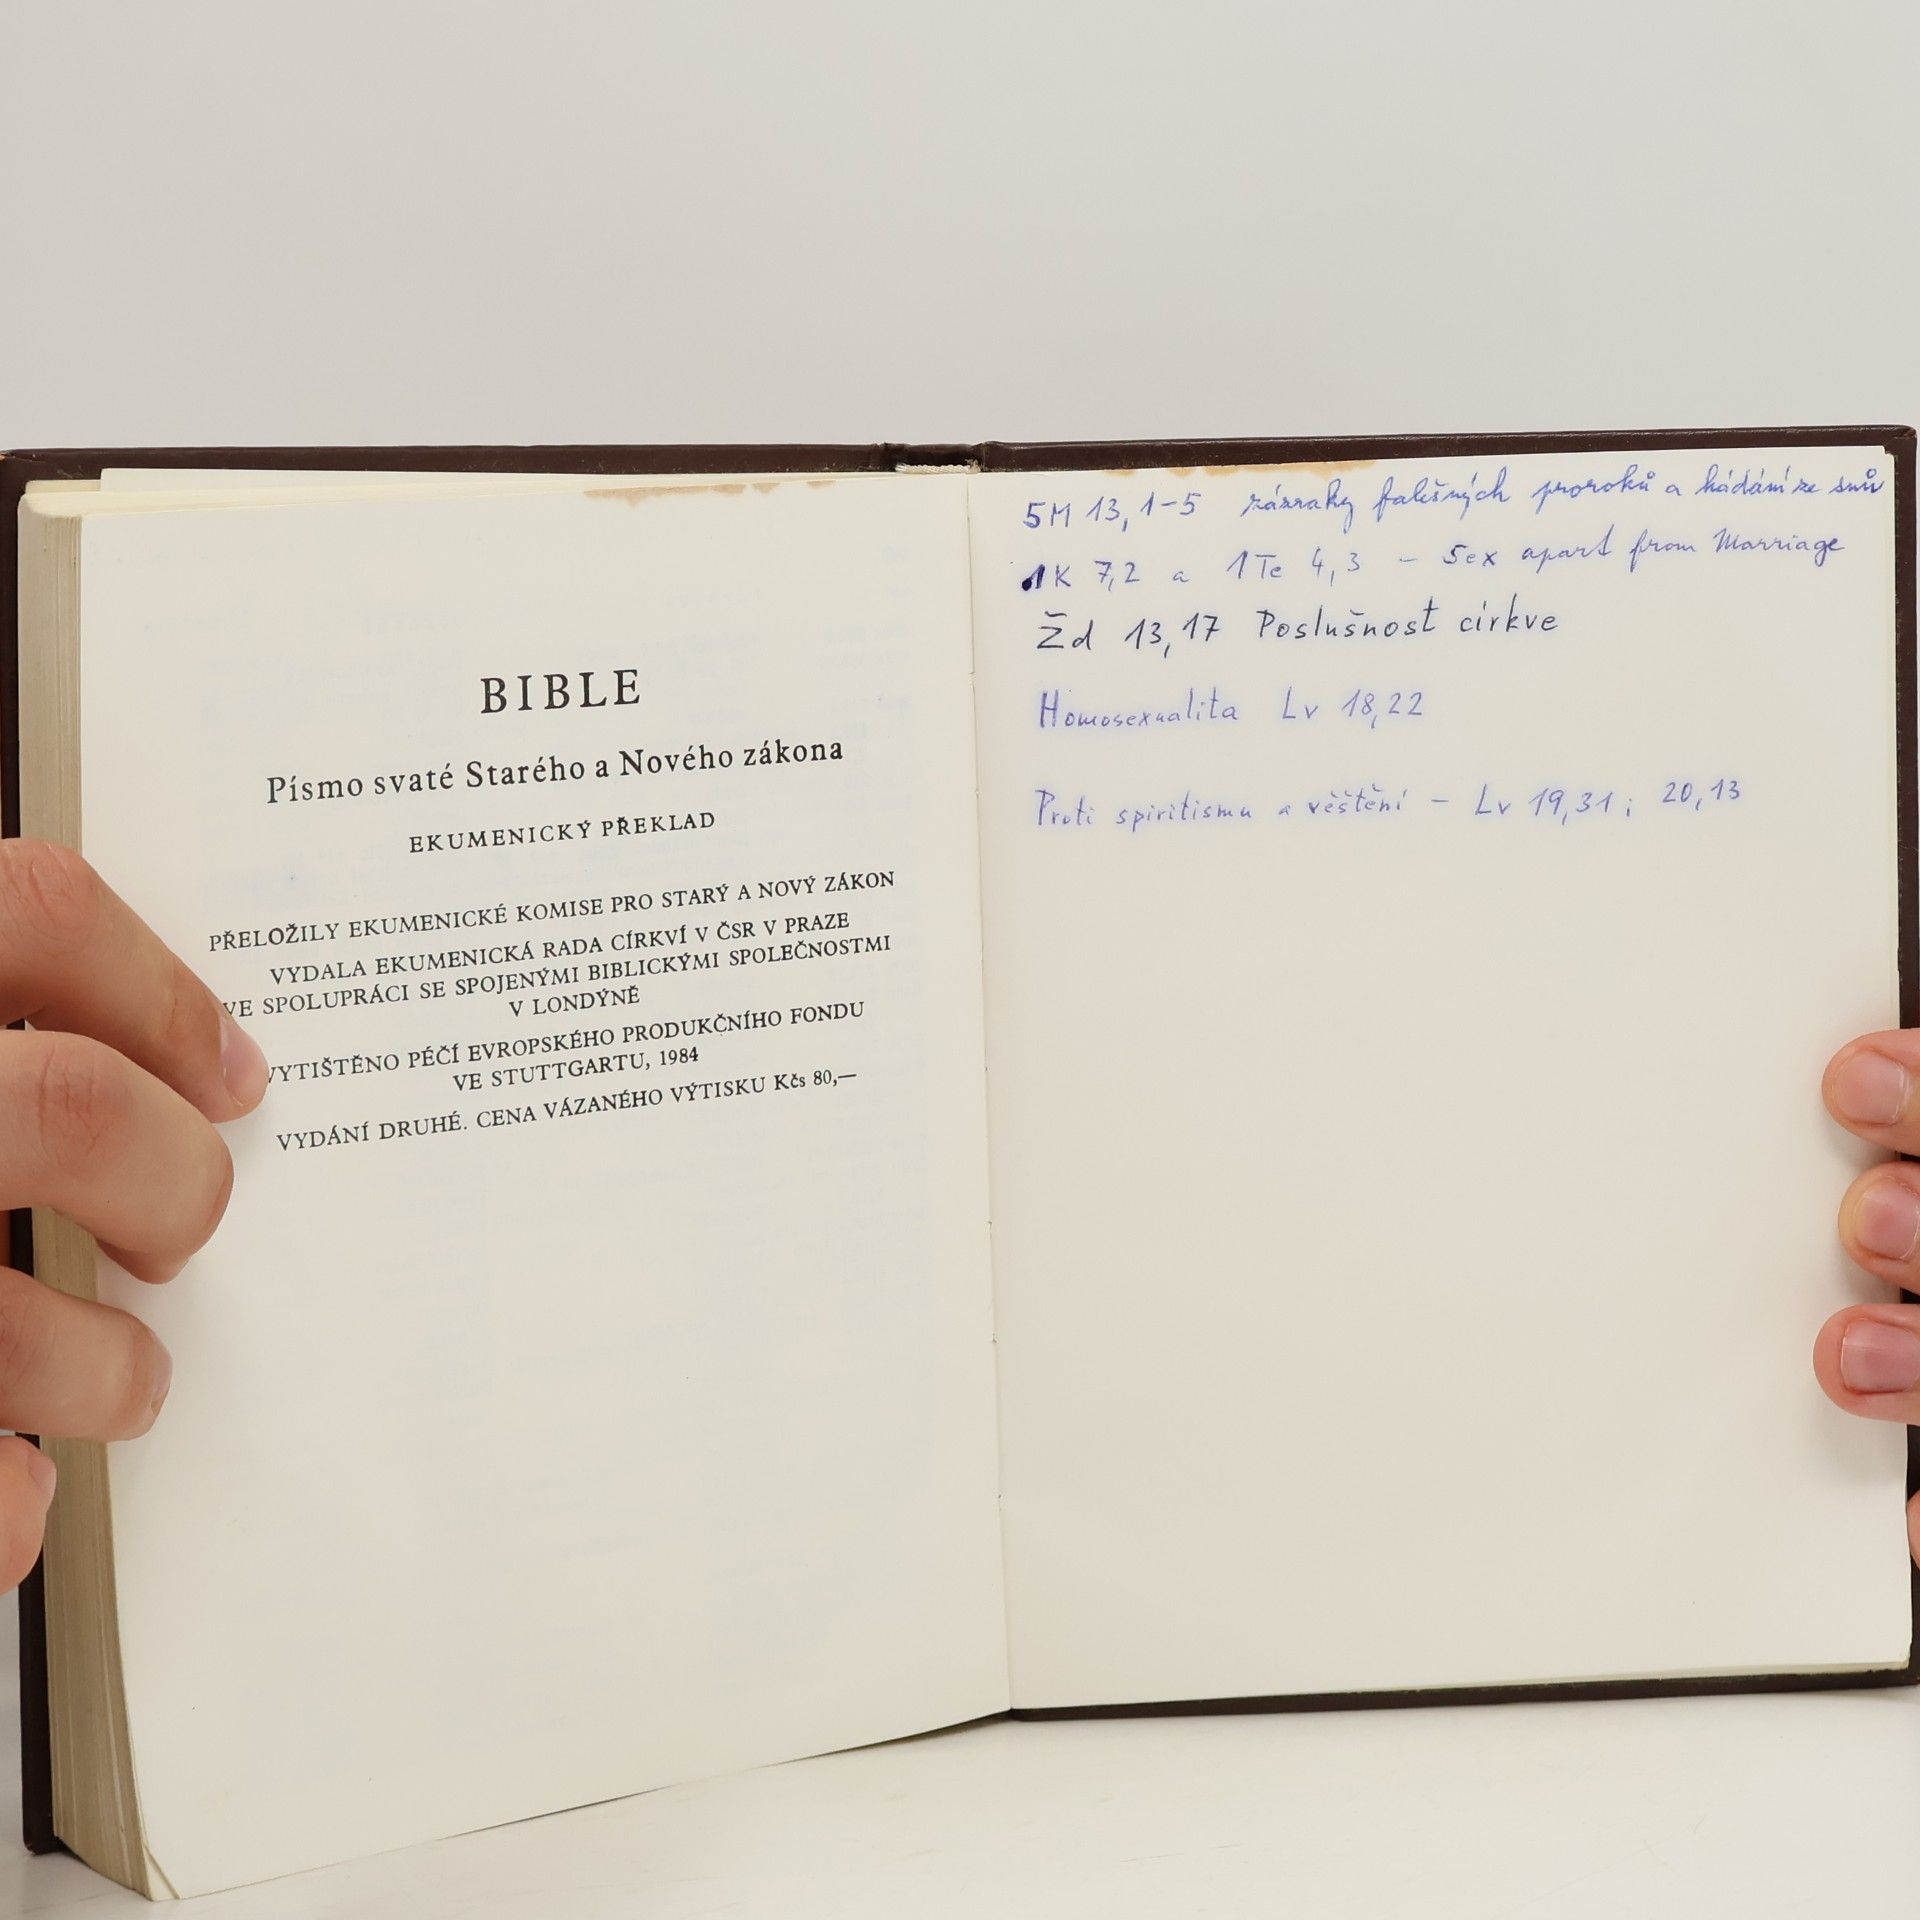 BIBLE
Písmo svaté Starého a Nového zákona
EKUMENICKÝ PŘEKLAD
PŘELOŽILY EKUMENICKÉ KOMISE PRO STARÝ A NOVÝ ZÁKON
VYDALA EKUMENICKÁ RADA CÍRKVÍ V ČSR V PRAZE
VE SPOLUPRÁCI SE SPOJENÝMI BIBLICKÝMI SPOLEČNOSTMI
V LONDÝNĚ
VYTIŠTĚNO PÉČÍ EVROPSKÉHO PRODUKČNÍHO FONDU
VE STUTTGARTU, 1984
VYDÁNÍ DRUHÉ. CENA VÁZANÉHO VÝTISKU Kčs 80,—
5M 13, 1-5 zázraky falešných proroků a hádání ze snů
1K 7,2 a 1Te 4,3 - Sex apart from Marriage
Žd 13,17 Poslušnost církve
Homosexualita Lv 18,22
Proti spiritismu a věštění - Lv 19,31; 20,13